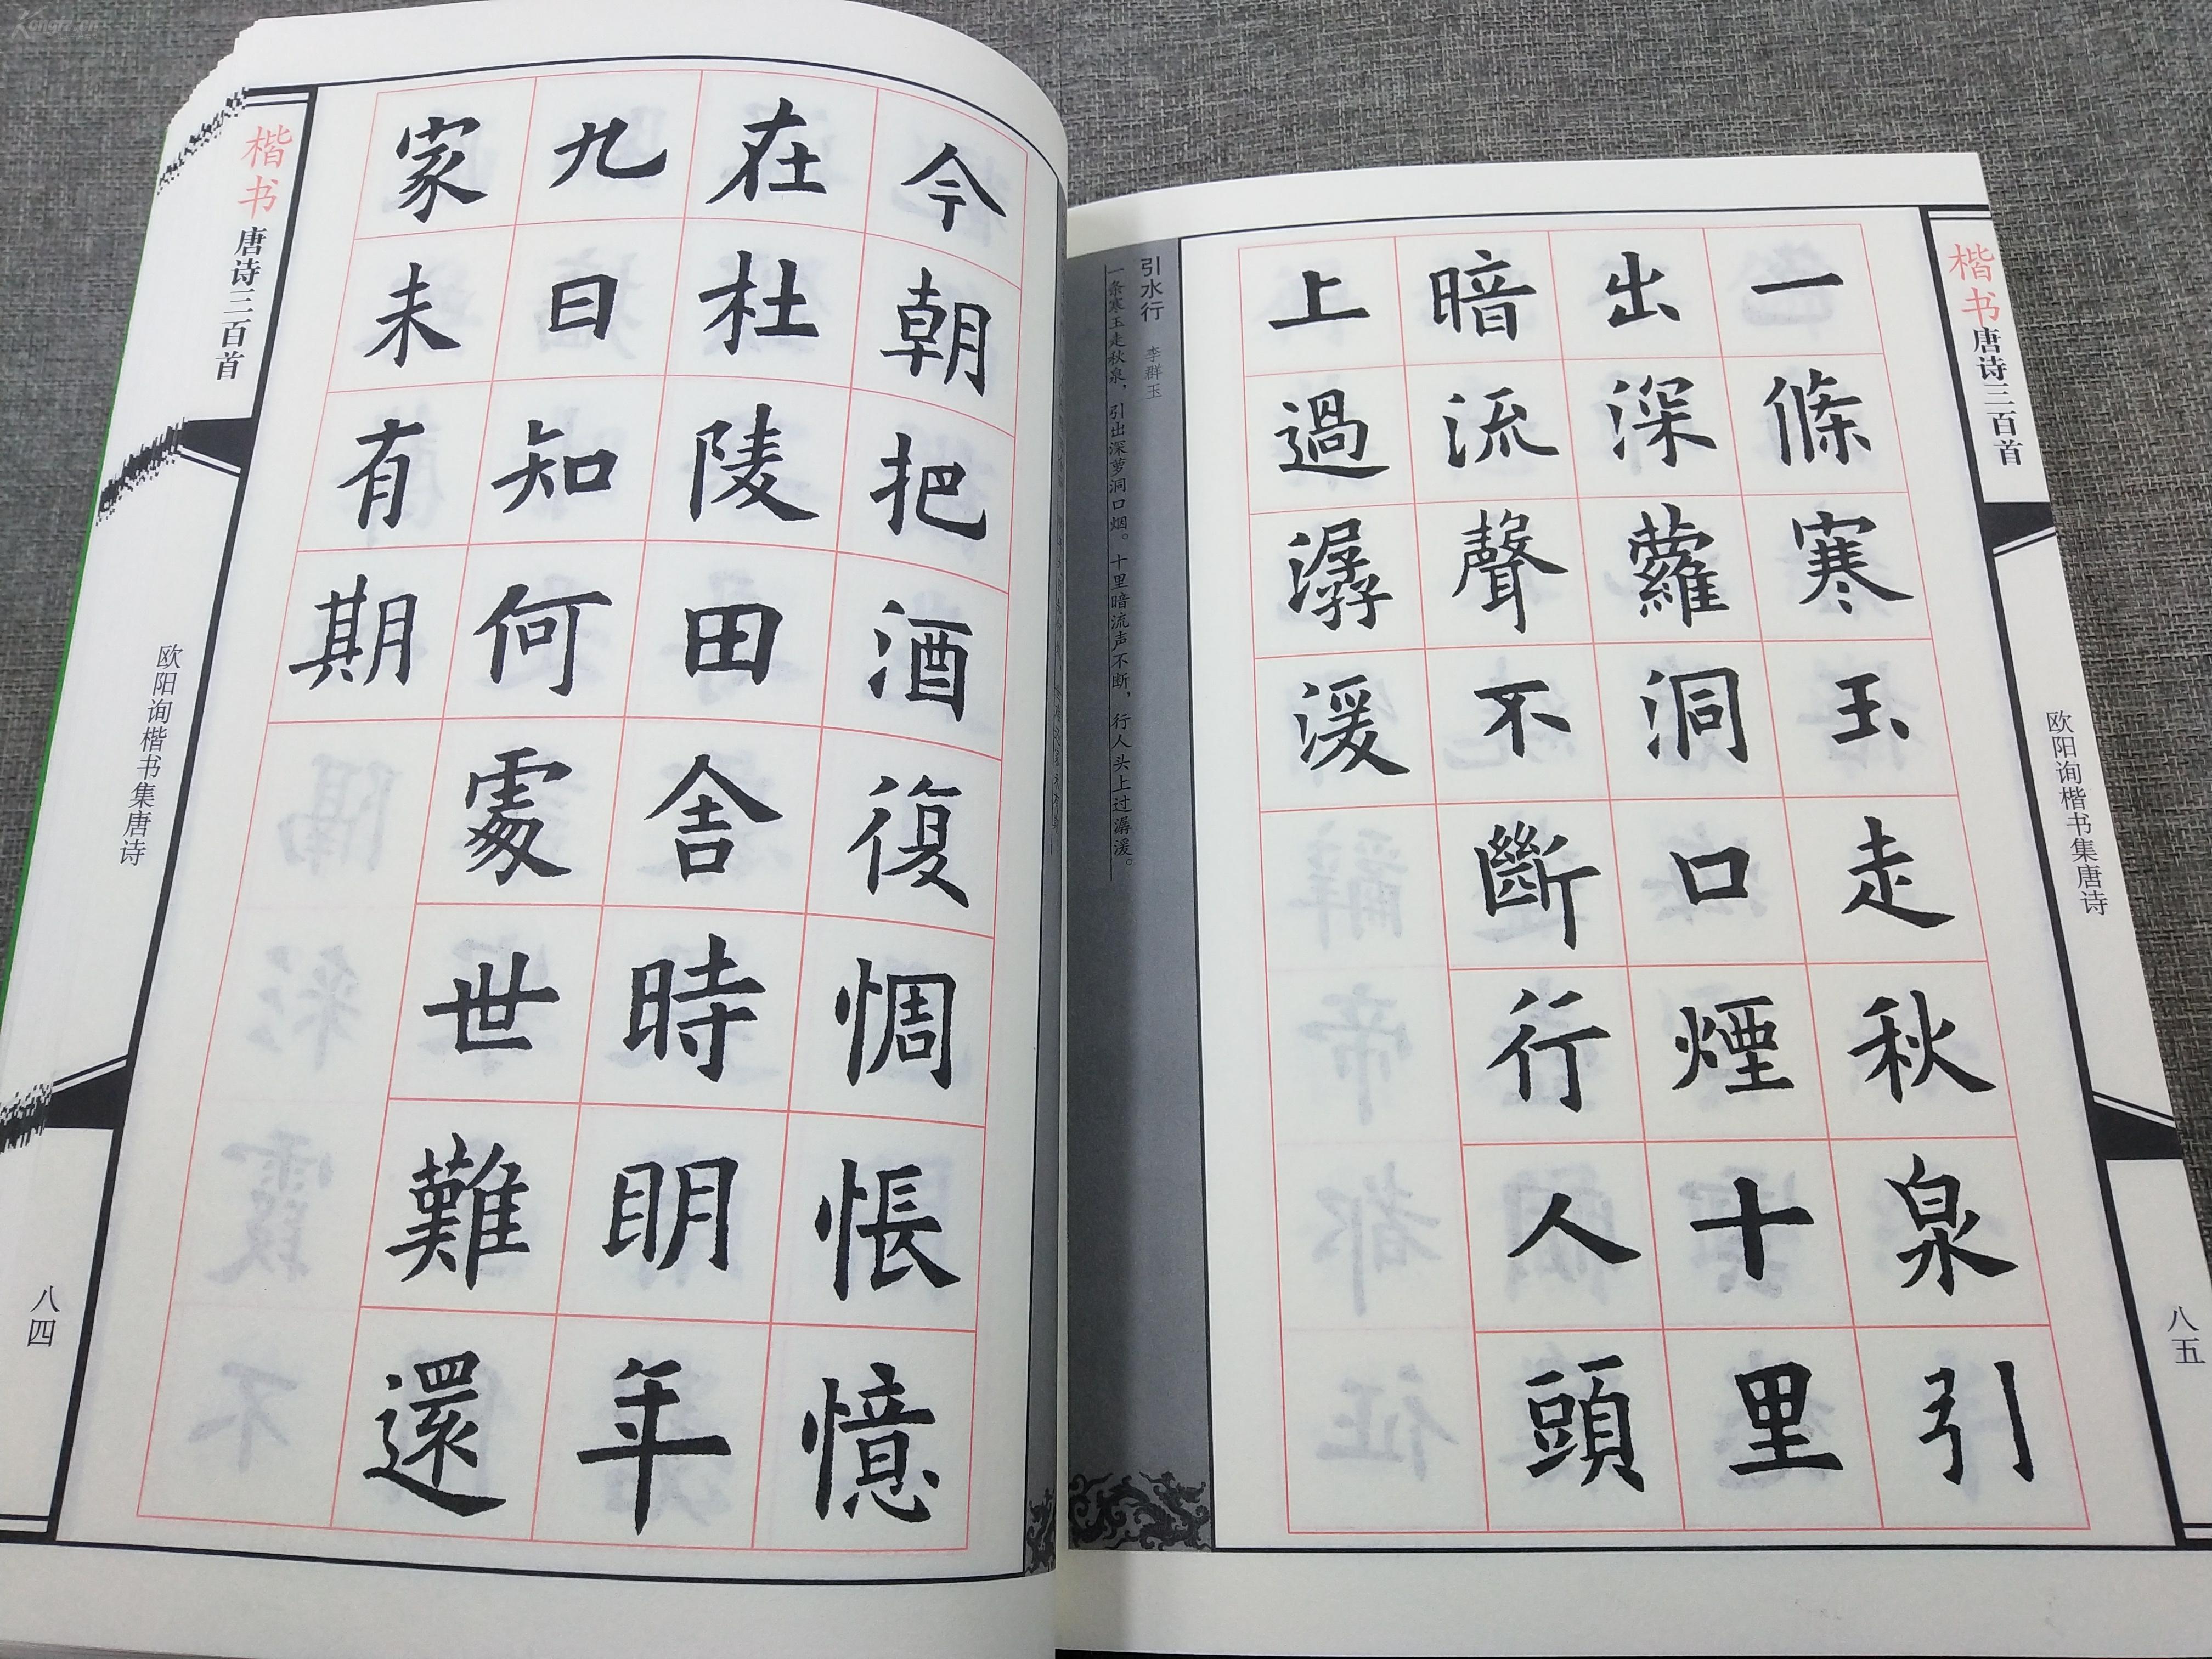 一條寒玉走秋泉引
出深蘿洞口煙十里
暗流聲不斷行人頭
上過潺湲
引水行 李群玉
一条寒玉走秋泉，引出深萝洞口烟。十里暗流声不断，行人头上过潺湲。
楷书唐诗三百首
欧阳询楷书集唐诗
八五
今朝把酒復惆悵憶
在杜陵田舍時明年
九日知何處世難還
家未有期
楷书唐诗三百首
欧阳询楷书集唐诗
八四